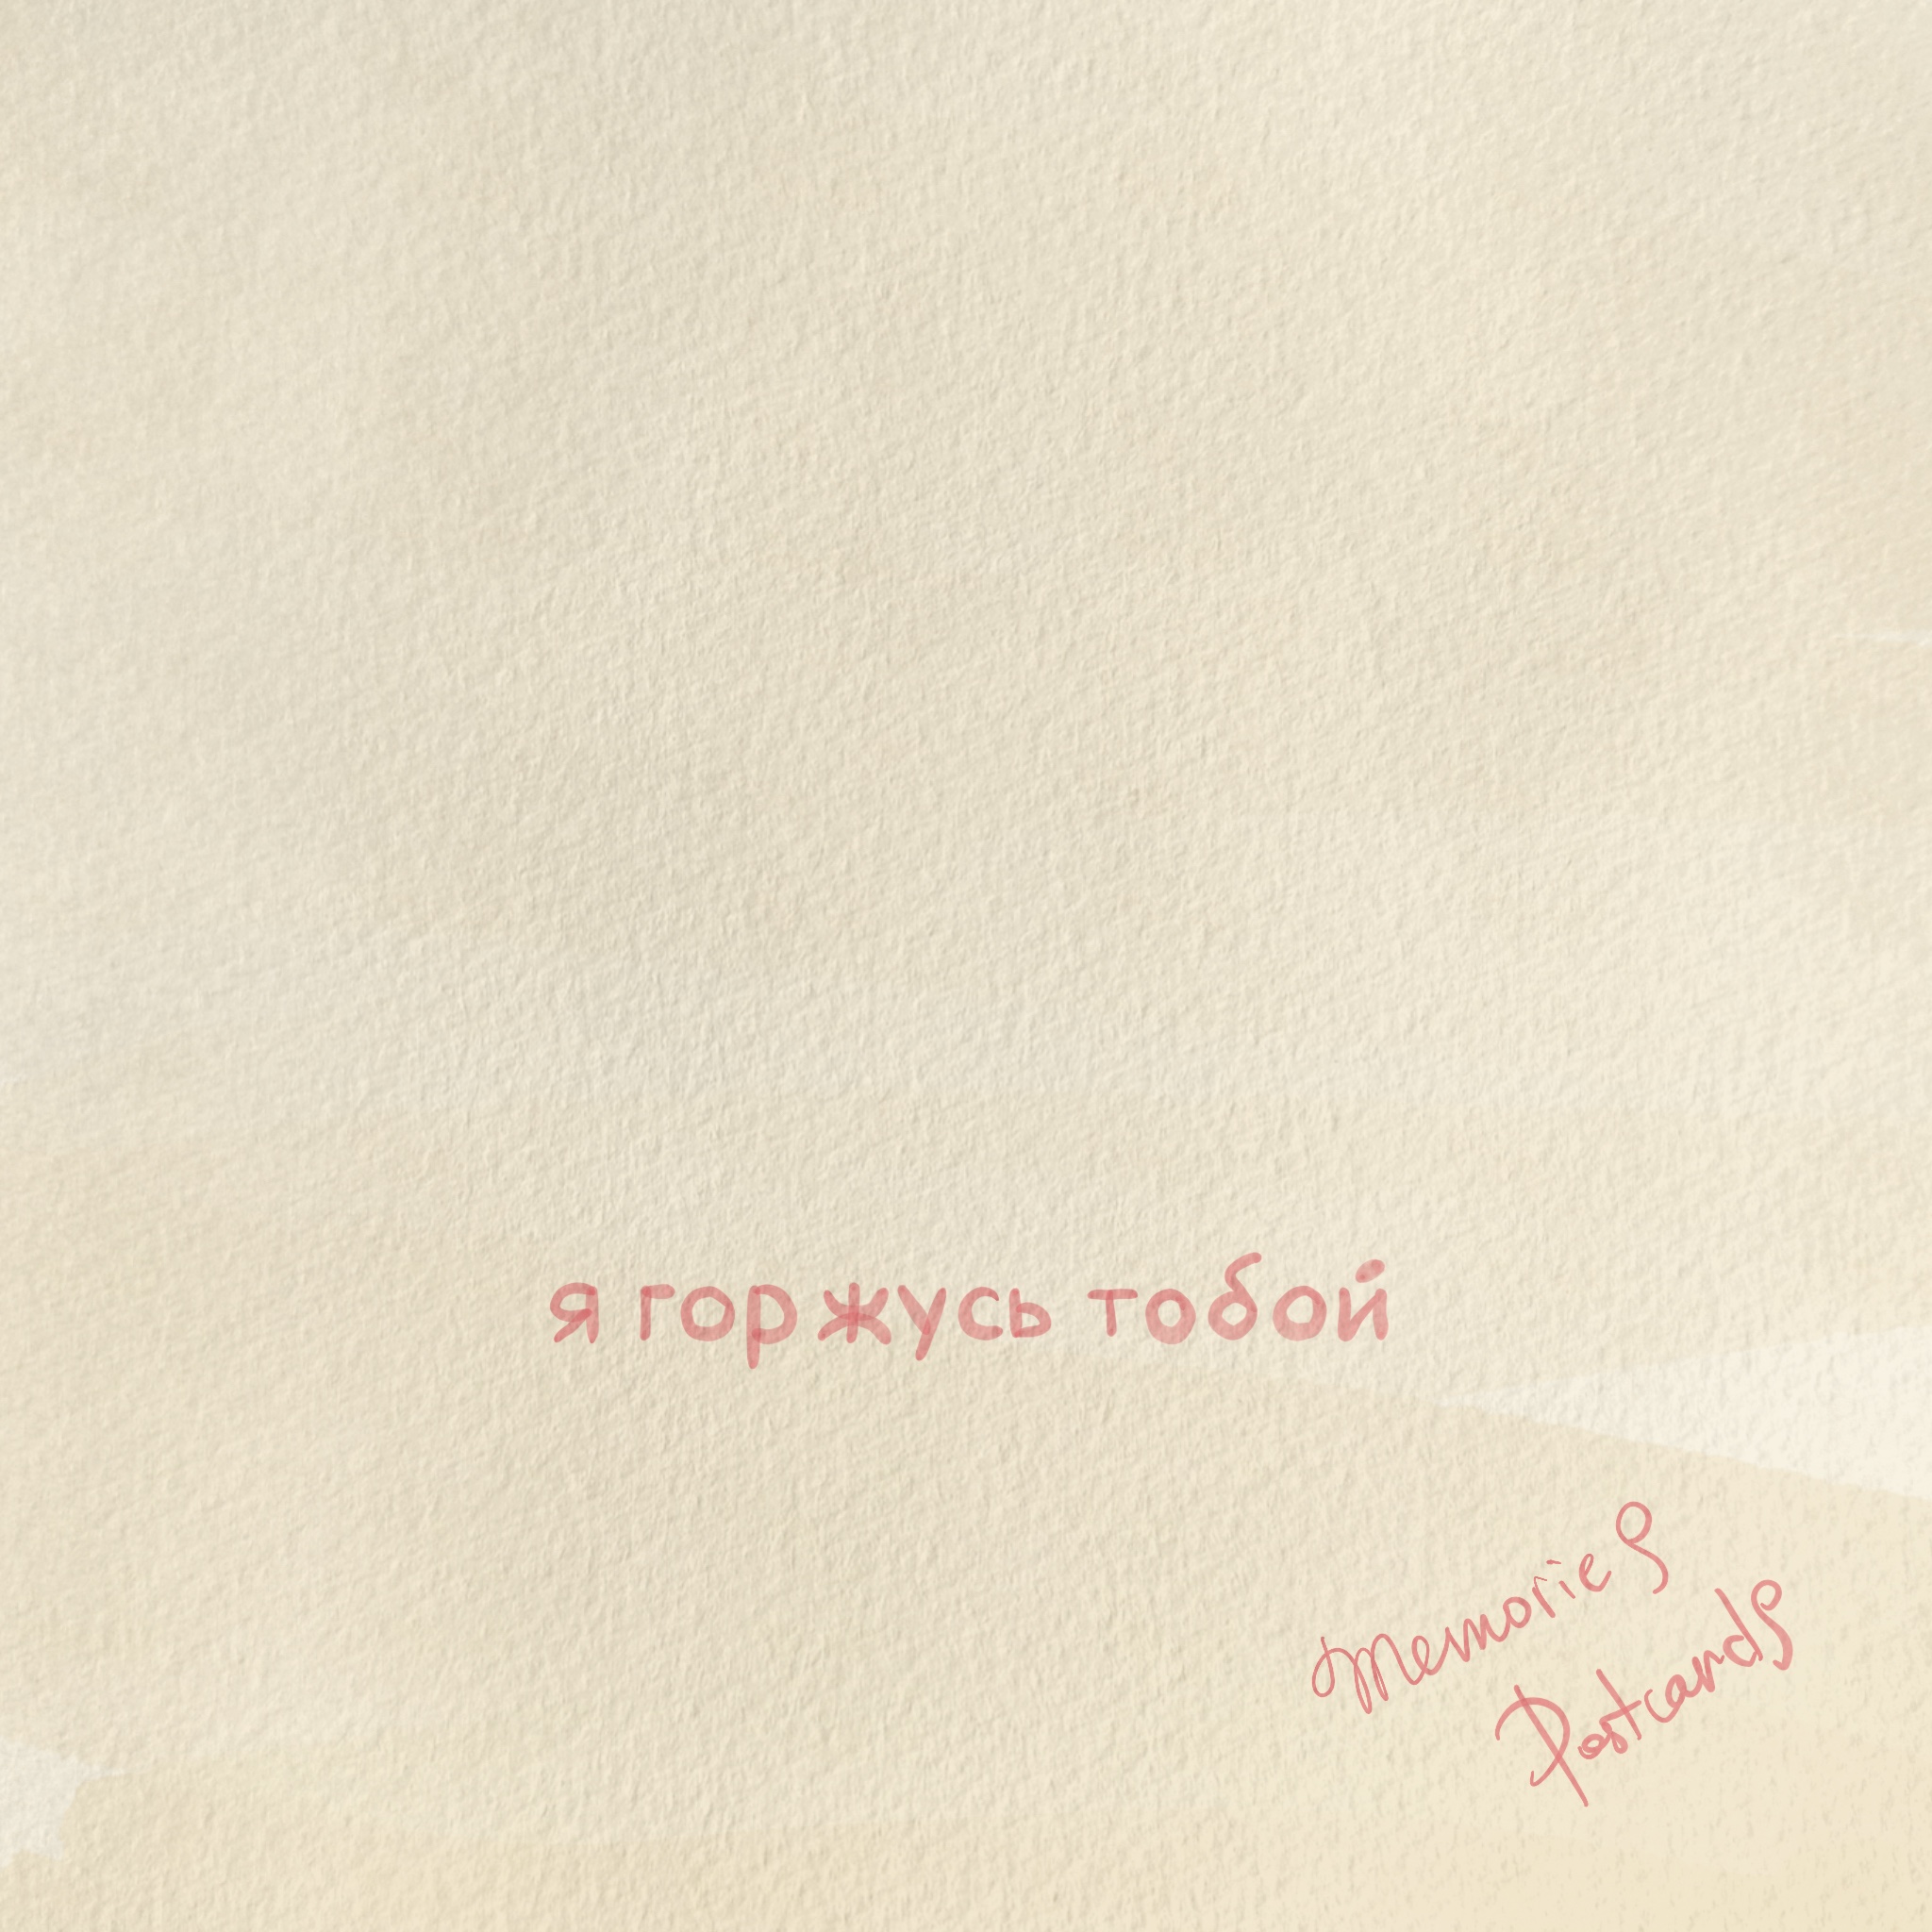 я горжусь тобой
Memories
Postcards